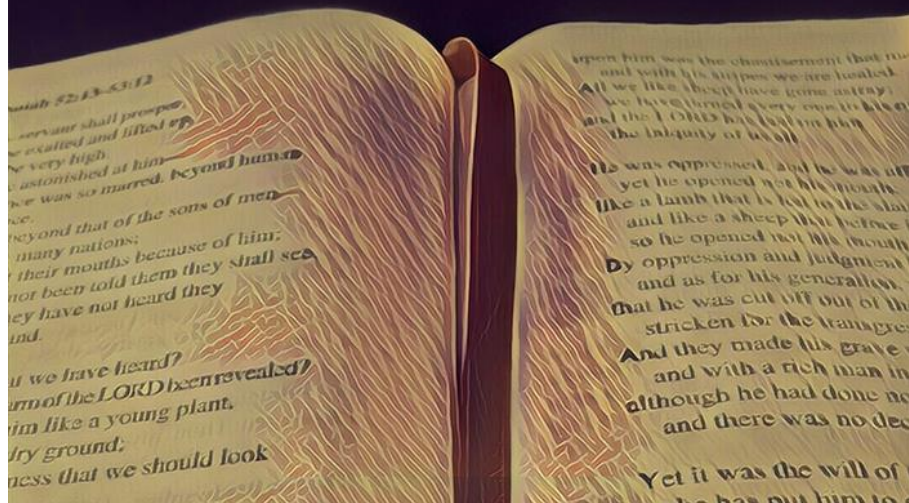 52:13-53:12
servant shall prosper,
exalted and lifted up
very high.
astonished at him
was so marred, beyond human
beyond that of the sons of men
many nations;
their mouths because of him;
not been told them they shall see
have not heard they
we have heard?
arm of the LORD been revealed?
him like a young plant,
dry ground;
that we should look
upon him was the chastisement that
and with his stripes we are healed.
All we like sheep have gone astray;
we have turned every one to
and the LORD has laid on him
the iniquity of us all.
He was oppressed, and he was
yet he opened not his mouth;
like a lamb that is
and like a sheep that before
so he opened not his mouth
By oppression and judgment
and as for his generation,
that he was cut off out of
stricken for the
And they made his grave
and with a rich man in
although he had done no
and there was no
Yet it was the will of
he has put